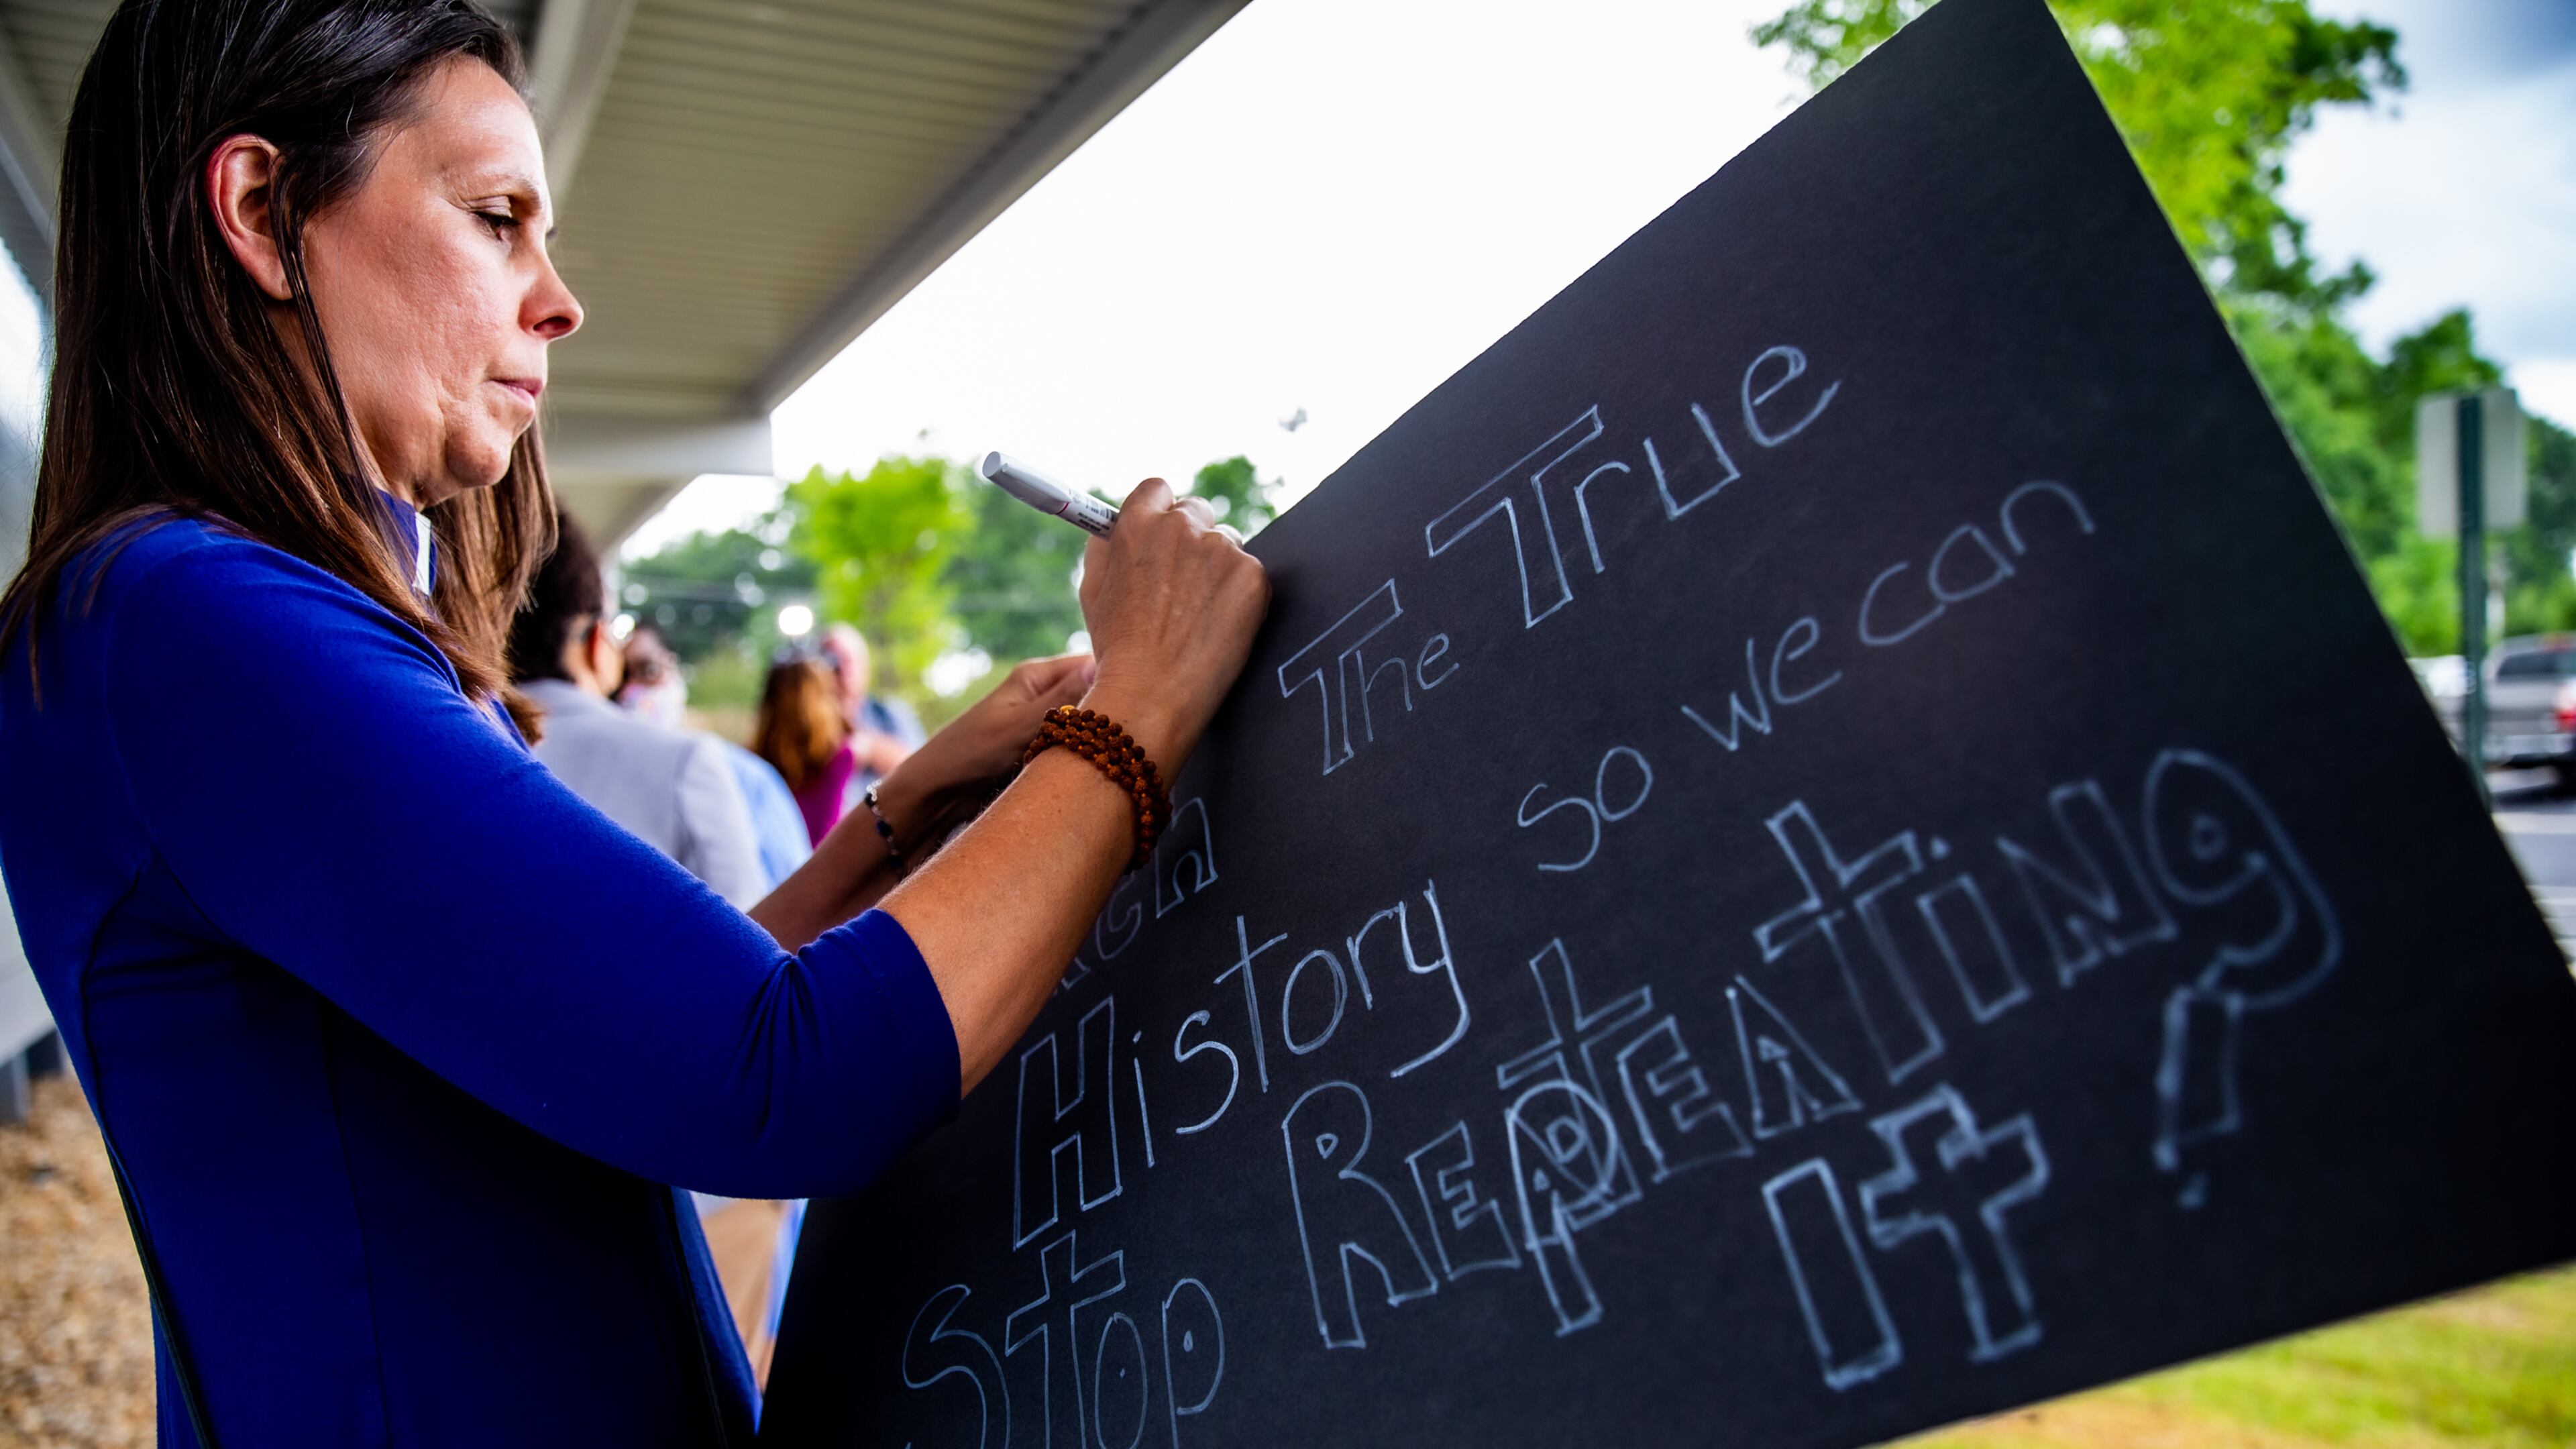 The True
History so we can
Stop REPEAtiNg
It!